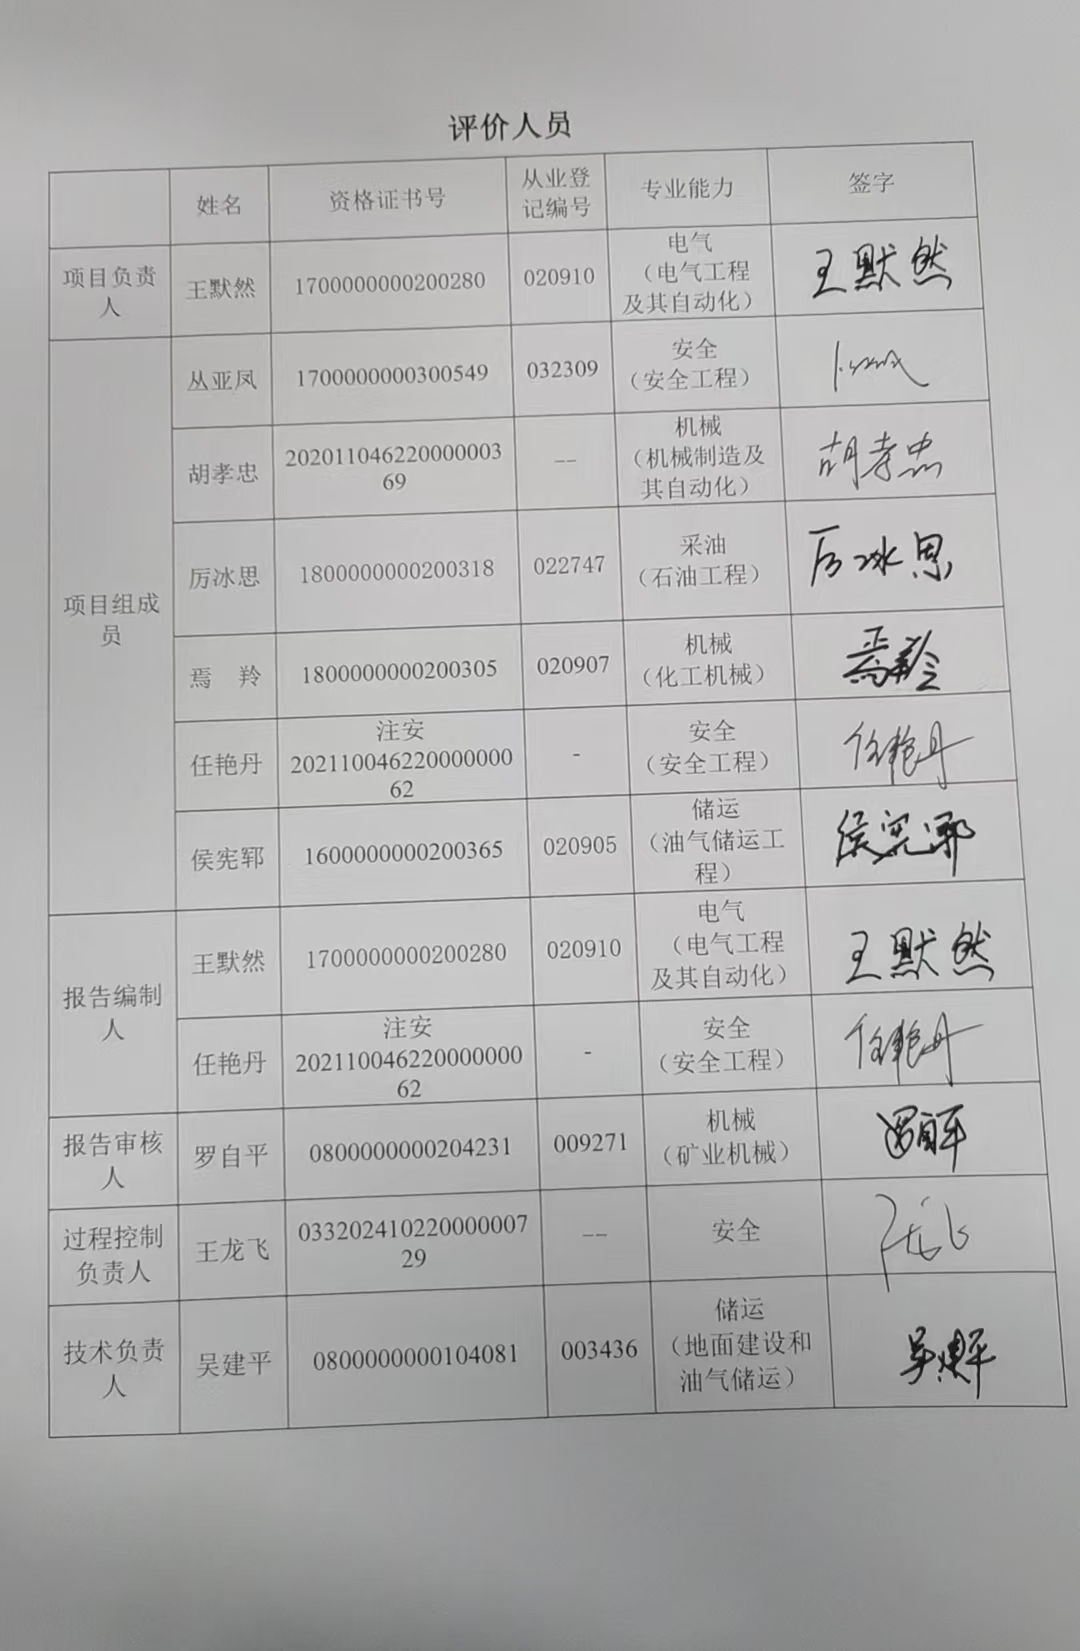 评价人员
姓名 资格证书号 从业登记编号 专业能力 签字
项目负责人 王默然 1700000000200280 020910 电气（电气工程及其自动化） 王默然
项目组成员 丛亚凤 1700000000300549 032309 安全（安全工程）
胡孝忠 20201104622000000369 -- 机械（机械制造及其自动化） 胡孝忠
厉冰思 1800000000200318 022747 采油（石油工程） 厉冰思
焉 羚 1800000000200305 020907 机械（化工机械） 焉羚
任艳丹 注安20211004622000000062 - 安全（安全工程） 任艳丹
侯宪郓 1600000000200365 020905 储运（油气储运工程） 侯宪郓
报告编制人 王默然 1700000000200280 020910 电气（电气工程及其自动化） 王默然
任艳丹 注安20211004622000000062 - 安全（安全工程） 任艳丹
报告审核人 罗自平 0800000000204231 009271 机械（矿业机械） 罗自平
过程控制负责人 王龙飞 03320241022000000729 -- 安全
技术负责人 吴建平 0800000000104081 003436 储运（地面建设和油气储运） 吴建平